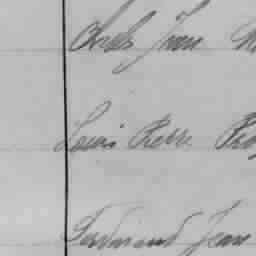 Charles Jean
Louis Pierre
Ferdinand Jean